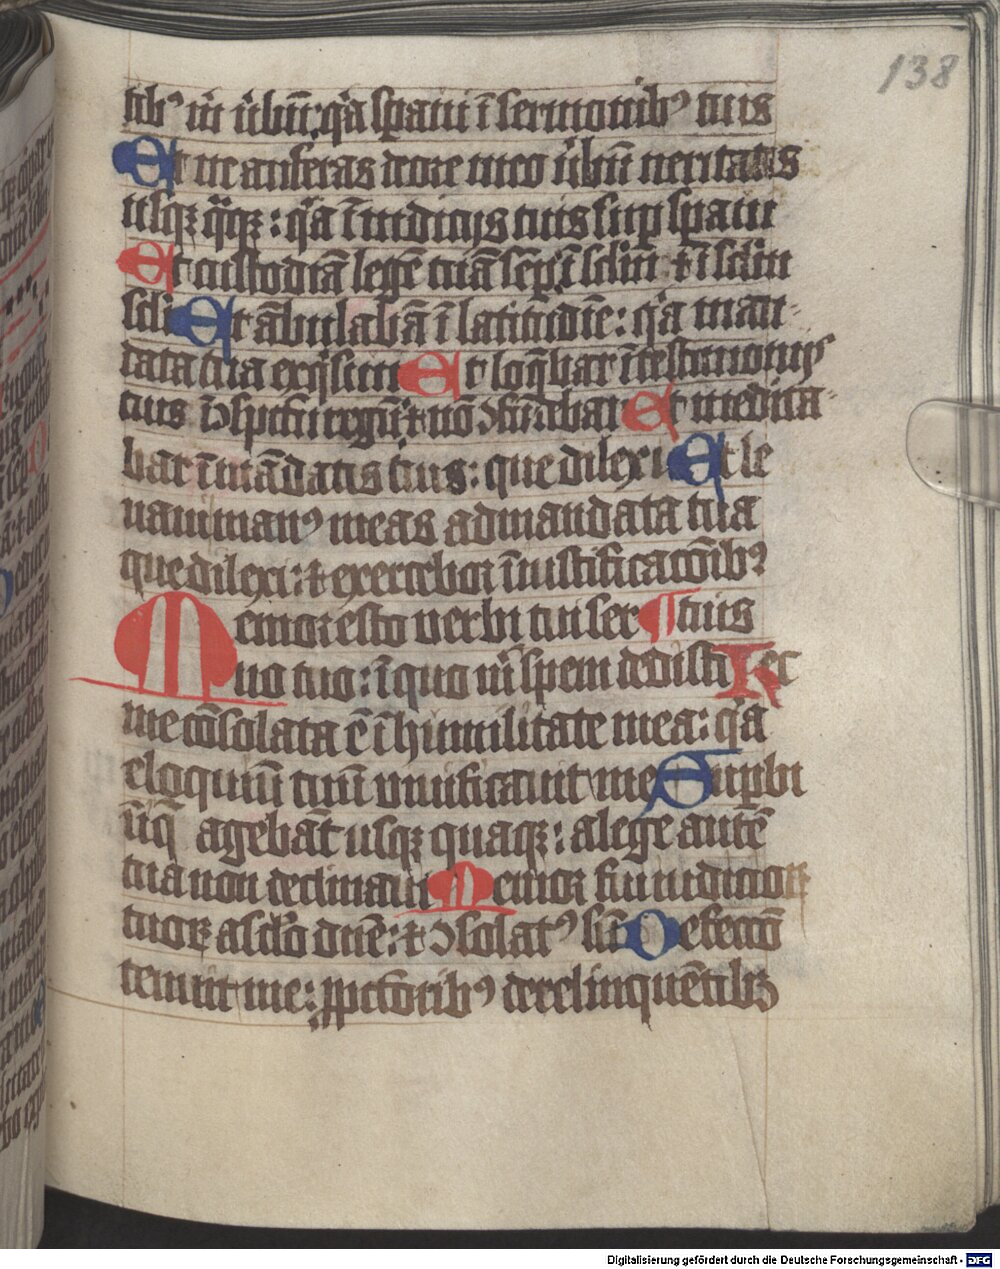 138
tib⁹ m̄ v̄bū: q̇a sp̄aui ī sermonib⁹ tuis
Et ne auferas de ore meo v̄bū veritatis
usq̨ q̄q̨: q̇a ī iudicijs tuis sup̲ sp̄aui
Et custodiā legē tuā sēp̲: ī sc̄lm ⁊ ī sc̄lm
sc̄li Et ābulabā ī latitudīe: q̇a man-
data tua exq̇siui Et loq̄bar ī testimonijs
tuis ī ꝯspc̄tu regū: ⁊ nō ꝯfūdebar Et medita-
bar ī mādatis tuis: que dilexi Et le
uaui man⁹ meas ad mandata tua
que dilexi: ⁊ exercebor ī iustificacōib⁹
Memor esto verbi tui ser ¶ tuis
uo tuo: ī quo m̄ spem dedisti Hec
me cōsolata ē ī humilitate mea: q̇a
eloquiū tuū viuificauit me Sup̲bi
īiq̄ agebāt usq̨ quaq̨: a lege autē
tua non declinaui Memor fui iudicioꝝ
tuoꝝ a sc̄lo dn̄e: ⁊ ꝯsolat⁹ sū Defectō
tenuit me: p̲ pc̄torib⁹ derelinquētibꝫ
Digitalisierung gefördert durch die Deutsche Forschungsgemeinschaft - DFG